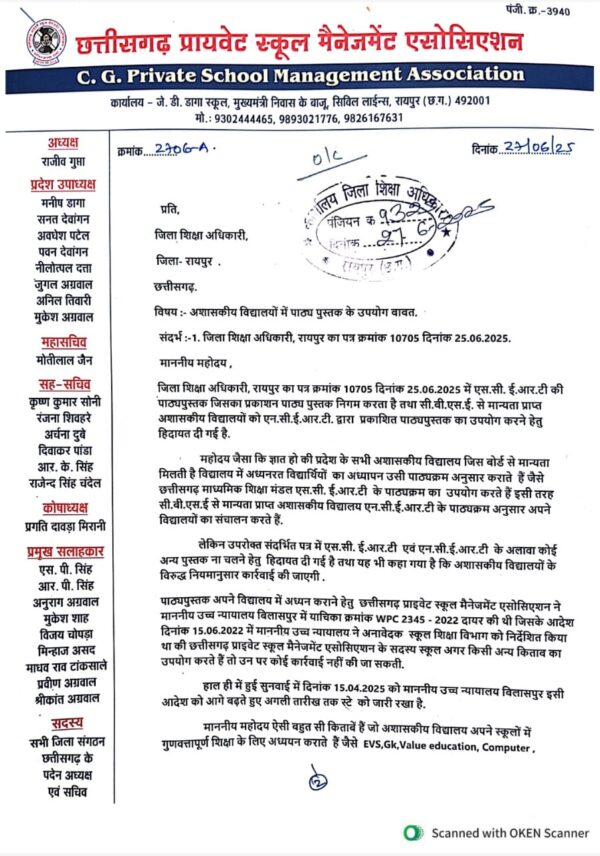 पंजी. क्र.-3940
छत्तीसगढ़ प्रायवेट स्कूल मैनेजमेंट एसोसिएशन
C. G. Private School Management Association
कार्यालय – जे. डी. डागा स्कूल, मुख्यमंत्री निवास के बाजू, सिविल लाईन्स, रायपुर (छ.ग.) 492001
मो.: 9302444465, 9893021776, 9826167631
अध्यक्ष
राजीव गुप्ता
प्रदेश उपाध्यक्ष
मनीष डागा
सनत देवांगन
अवधेश पटेल
पवन देवांगन
नीलोत्पल दत्ता
जुगल अग्रवाल
अनिल तिवारी
मुकेश अग्रवाल
महासचिव
मोतीलाल जैन
सह-सचिव
कृष्ण कुमार सोनी
रंजना शिवहरे
अर्चना दुबे
दिवाकर पांडा
आर. के. सिंह
राजेन्द सिंह चंदेल
कोषाध्यक्ष
प्रगति दावड़ा मिरानी
प्रमुख सलाहकार
एस. पी. सिंह
आर. पी. सिंह
अनुराग अग्रवाल
मुकेश शाह
विजय चोपड़ा
मिन्हाज असद
माधव राव टांकसाले
प्रवीण अग्रवाल
श्रीकांत अग्रवाल
सदस्य
सभी जिला संगठन
छत्तीसगढ़ के
पदेन अध्यक्ष
एवं सचिव
क्रमांक 2706-A.
दिनांक 27/06/25
O/C
कार्यालय जिला शिक्षा अधिकारी
पंजियन क 932
दिनांक 27 6 2025
रायपुर (छ.ग.)
प्रति,
जिला शिक्षा अधिकारी,
जिला- रायपुर .
छत्तीसगढ़.
विषय :- अशासकीय विद्यालयों में पाठ्य पुस्तक के उपयोग बाबत.
संदर्भ :-1. जिला शिक्षा अधिकारी, रायपुर का पत्र क्रमांक 10705 दिनांक 25.06.2025.
माननीय महोदय ,
जिला शिक्षा अधिकारी, रायपुर का पत्र क्रमांक 10705 दिनांक 25.06.2025 में एस.सी. ई.आर.टी की
पाठ्यपुस्तक जिसका प्रकाशन पाठ्य पुस्तक निगम करता है तथा सी.बी.एस.ई. से मान्यता प्राप्त
अशासकीय विद्यालयों को एन.सी.ई.आर.टी. द्वारा प्रकाशित पाठ्यपुस्तक का उपयोग करने हेतु
हिदायत दी गई है.
महोदय जैसा कि ज्ञात हो की प्रदेश के सभी अशासकीय विद्यालय जिस बोर्ड से मान्यता
मिलती है विद्यालय में अध्यनरत विद्यार्थियों का अध्यापन उसी पाठ्यक्रम अनुसार कराते हैं जैसे
छत्तीसगढ़ माध्यमिक शिक्षा मंडल एस.सी. ई.आर.टी के पाठ्यक्रम का उपयोग करते हैं इसी तरह
सी.बी.एस.ई से मान्यता प्राप्त अशासकीय विद्यालय एन.सी.ई.आर.टी के पाठ्यक्रम अनुसार अपने
विद्यालयों का संचालन करते हैं.
लेकिन उपरोक्त संदर्भित पत्र में एस.सी. ई.आर.टी एवं एन.सी.ई.आर.टी के अलावा कोई
अन्य पुस्तक ना चलने हेतु हिदायत दी गई है तथा यह भी कहा गया है कि अशासकीय विद्यालयों के
विरुद्ध नियमानुसार कार्रवाई की जाएगी .
पाठ्यपुस्तक अपने विद्यालय में अध्यन कराने हेतु छत्तीसगढ़ प्राइवेट स्कूल मैनेजमेंट एसोसिएशन ने
माननीय उच्च न्यायालय विलासपुर में याचिका क्रमांक WPC 2345 - 2022 दायर की थी जिसके आदेश
दिनांक 15.06.2022 में माननीय उच्च न्यायालय ने अनावेदक स्कूल शिक्षा विभाग को निर्देशित किया
था की छत्तीसगढ़ प्राइवेट स्कूल मैनेजमेंट एसोसिएशन के सदस्य स्कूल अगर किसी अन्य किताब का
उपयोग करते हैं तो उन पर कोई कार्रवाई नहीं की जा सकती.
हाल ही में हुई सुनवाई में दिनांक 15.04.2025 को माननीय उच्च न्यायालय विलासपुर इसी
आदेश को आगे बढ़ते हुए अगली तारीख तक स्टे को जारी रखा है.
माननीय महोदय ऐसी बहुत सी किताबें हैं जो अशासकीय विद्यालय अपने स्कूलों में
गुणवत्तापूर्ण शिक्षा के लिए अध्ययन कराते हैं जैसे EVS,Gk,Value education, Computer ,
Scanned with OKEN Scanner